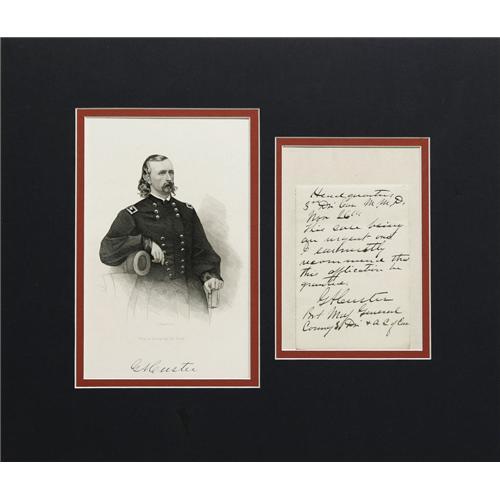 G A Custer
Headquarters
3rd Div Cav M. M. D.
Nov 26th
This case being
an urgent one
I earnestly
recommend that
this application be
granted.
G A Custer
Bvt Maj General
Comdg 3d Div & A C of Cav